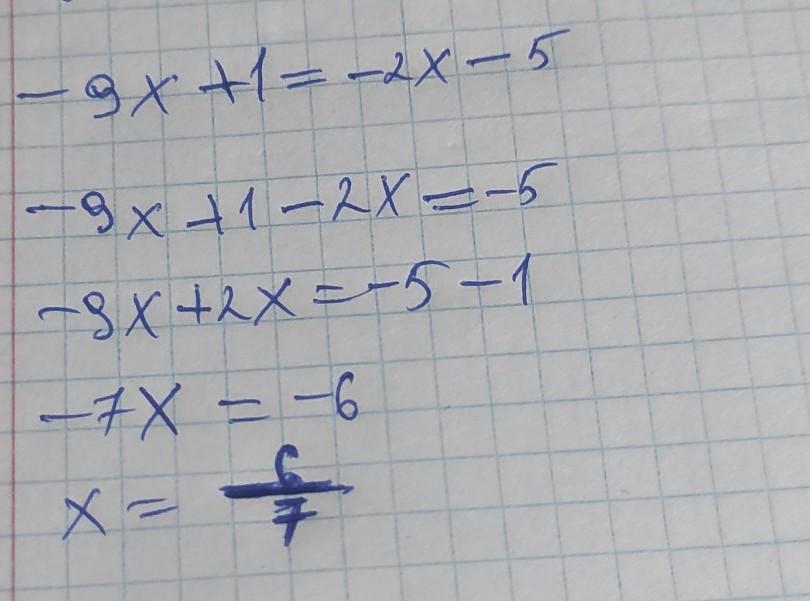 -9x+1=-2x-5
-9x+1-2x=-5
-9x+2x=-5-1
-7x=-6
x=6/7